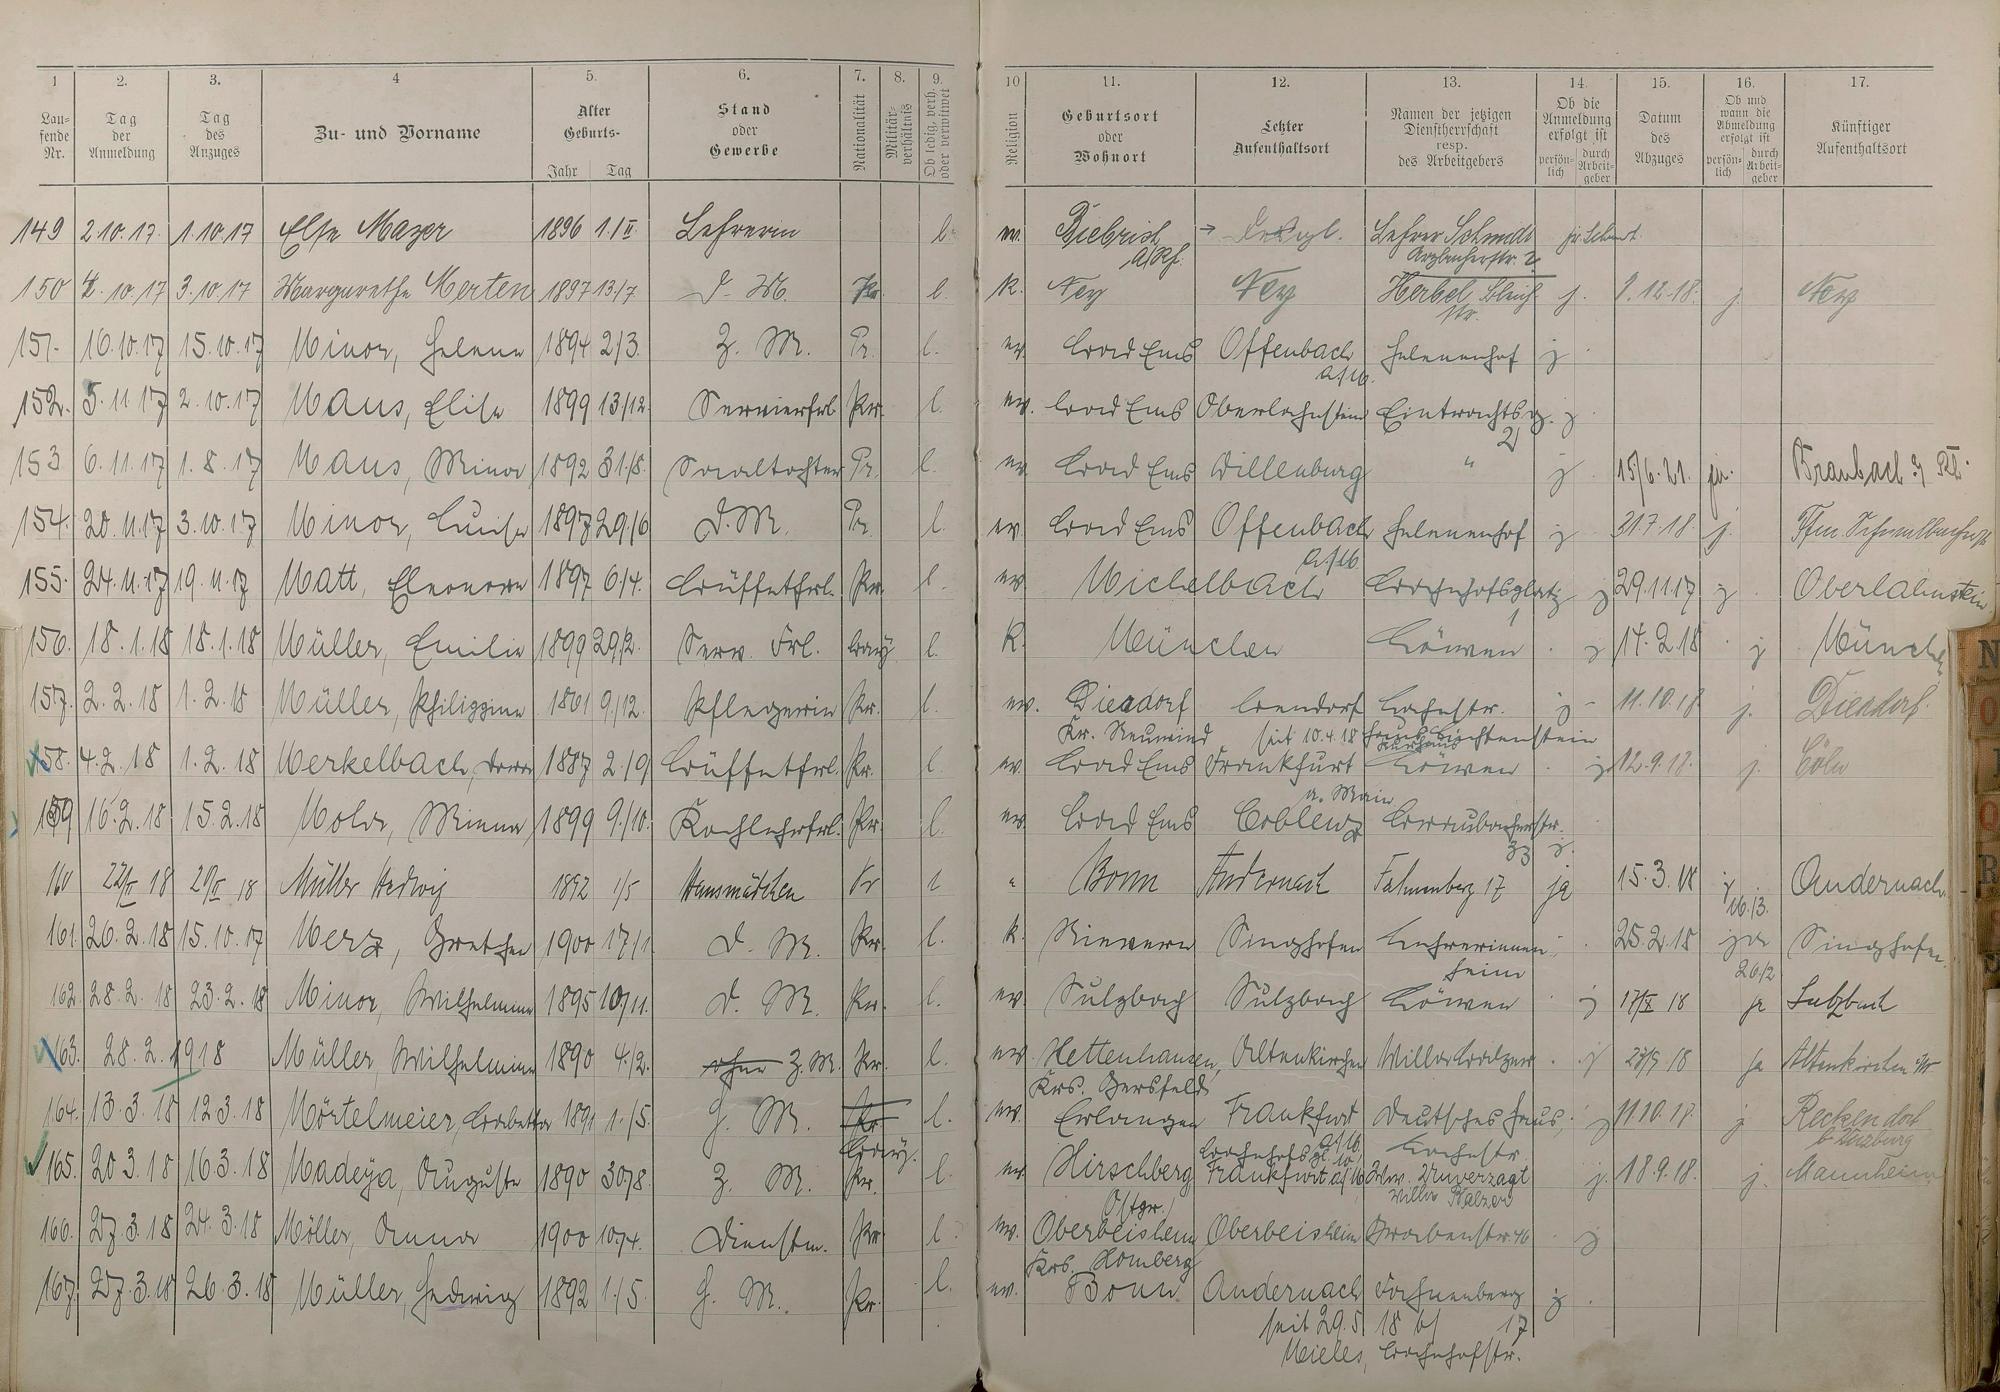 1 2. 3. 4 5. 6. 7. 8. 9. 10 11. 12. 13. 14. 15. 16. 17.
Lau-
fende
Nr.
Tag
der
Anmeldung
Tag
des
Anzuges
Zu- und Vorname
Alter
Geburts-
Jahr Tag
Stand
oder
Gewerbe
Nationalität
Militär-
verhältnis
Ob ledig, verh.
oder verwitwet
Religion
Geburtsort
oder
Wohnort
Letzter
Aufenthaltsort
Namen der jetzigen
Dienstherrschaft
resp.
des Arbeitgebers
Ob die
Anmeldung
erfolgt ist
persön-
lich
durch
Arbeit-
geber
Datum
des
Abzuges
Ob und
wann die
Abmeldung
erfolgt ist
persön-
lich
durch
Arbeit-
geber
Künftiger
Aufenthaltsort
149 2.10.17. 1.10.17 Else Mayer 1896 1.II Lehrerin l. ev. Biebrich → Lehrer Schmidt
a/Rh. 2
150 4.10.17 3.10.17 Margarethe Merten 1897 13/7 D. M. Pr. l. K. Ney Ney Herbel, Bleich- j. 9.12.18. j. Ney
str.
151. 16.10.17 15.10.17 Minor, Helene 1894 2/3. Z. M. Pr. l. ev. Bad Ems Offenbach Helenenhof j
a/M.
152. 5.11.17 2.10.17 Maus, Elise 1899 13/12. Servierfrl. Pr. l. ev. Bad Ems Oberlahnstein Eintrachtsg. j.
21
153 6.11.17 1.8.17 Maus, Minna 1892 31./8. Haustochter Pr. l. ev. Bad Ems Dillenburg " j. 15/6.21. Braubach a/Rh.
154. 20.11.17 3.10.17 Minor, Luise 1897 29/6 D. M. Pr. l. ev. Bad Ems Offenbach Helenenhof j. 31.7.18. j.
a/M.
155. 24.11.17 19.11.17 Matt, Eleonore 1897 6/4. Büffetfrl. Pr. l. ev. Michelbach Bahnhofsplatz j 29.11.17 j. Oberlahnstein
1
156. 18.1.18 18.1.18 Müller, Emilie 1899 29/2. Serv. Frl. Bay. l. K. München Löwen . j 14.2.18 . j München
157. 2.2.18 1.2.18 Müller, Philippine 1861 9./12. Pflegerin Pr. l. ev. Dierdorf Bendorf Bahnstr. j - 11.10.18. j. Dierdorf.
Kr. Neuwied seit 10.4.18 Lichtenstein
158. 4.2.18 1.2.18 Merkelbach, Dora 1887 2./9 Büffetfrl. Pr. l. ev. Bad Ems Frankfurt Löwen . j 12.9.18. j. Cöln
a. Main
159 16.2.18 15.2.18 Mola, Minna 1899 9./10. Kochlehrfrl. Pr. l. ev. Bad Ems Coblenz Braubacherstr.
33 j.
160 22/II 18 20/II 18 Müller Hedwig 1892 1/5 Hausmädchen Pr l " Bonn Andernach Fahnenberg 17 ja 15.3.18 j Andernach.
16./3.
161. 26.2.18 15.10.17 Merz, Gretchen 1900 17/1 D. M. Pr. l. k. Nievern Singhofen Lehrerinnen- . 25.2.18 Singhofen.
heim 26/2
162. 28.2.18 23.2.18 Minor, Wilhelmine 1895 10/11. D. M. Pr. l. ev. Sulzbach Sulzbach Löwen . j 17/X 18 ja Sulzbach
163. 28.2.1918 Müller, Wilhelmine 1890 4./2. ohne Z. M. Pr. l. ev. Hettenhausen, Altenkirchen Villa Balzer . j 27/9 18 ja Altenkirchen
Krs. Gersfeld
164. 13.3.18 12.3.18 Mörtelmeier, Babetta 1891 1./5. H. M. Pr l. ev. Erlangen Frankfurt Deutsches Haus, . j 11.10.18 j Reckendorf
Bay. a/M. Bahnstr. b. Würzburg
Bahnhofspl. 10
165. 20.3.18 16.3.18 Madeya, Auguste 1890 30/8. Z. M. Pr. l. ev. Hirschberg Frankfurt a/M. Ww. Unverzagt j. 18.9.18. j. Mannheim
Ostpr. Villa Balzer
166. 27.3.18 24.3.18 Möller, Anna 1900 10/4. Dienstm. Pr l. ev. Oberbeisheim Oberbeisheim Grabenstr 46 . j
Krs. Homberg
167. 27.3.18 26.3.18 Müller, Hedwig 1892 1./5. H. M. Pr. l. ev. Bonn Andernach Fahnenberg j .
seit 29.5.18 b/ 17
Mieles, Bahnhofstr.